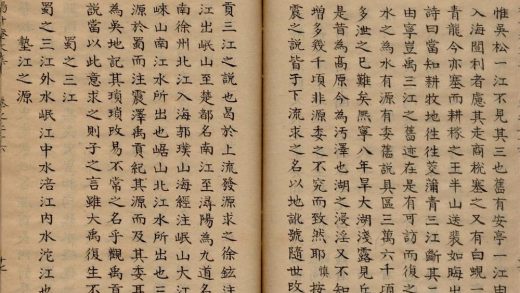 惟吳松一江不見其三也舊有安亭一江由
入海閩利者慮其走商梲塞之又有白蜆一
青龍今亦塞而耕稼之王半山送裴如晦出
詩曰當知耕牧地往往茭蒲青三江斷其二
由寧豈禹三江之舊迹在是有可訪而復之
水之為水有源有委舊說具區三萬六千項
多泄之已難矣熈寧八年旱大湖淺露見丘
是昔為高原今為汚澤也湖之浸淫又不知
增多幾千項非源委之不究而致然耶慎按
震之說皆于下流求之名以地訛號隨世攺
貢三江之說也曷於上流發源求之徐鉉注
江出岷山至楚都名南江至潯陽為九道名
南徐州北江入海郭璞山海經注岷山大江
崍山南江水所出也崌山北江水所出也三
源於蜀而注震澤禹貢紀其源而及其委耳
為吳地記其瑣瑣攺易不常之名乎觀禹貢
說當以此意求之則子之言雖大禹復生不
蜀之三江
蜀之三江外水岷江中水涪江内水沱江也
墊江之源